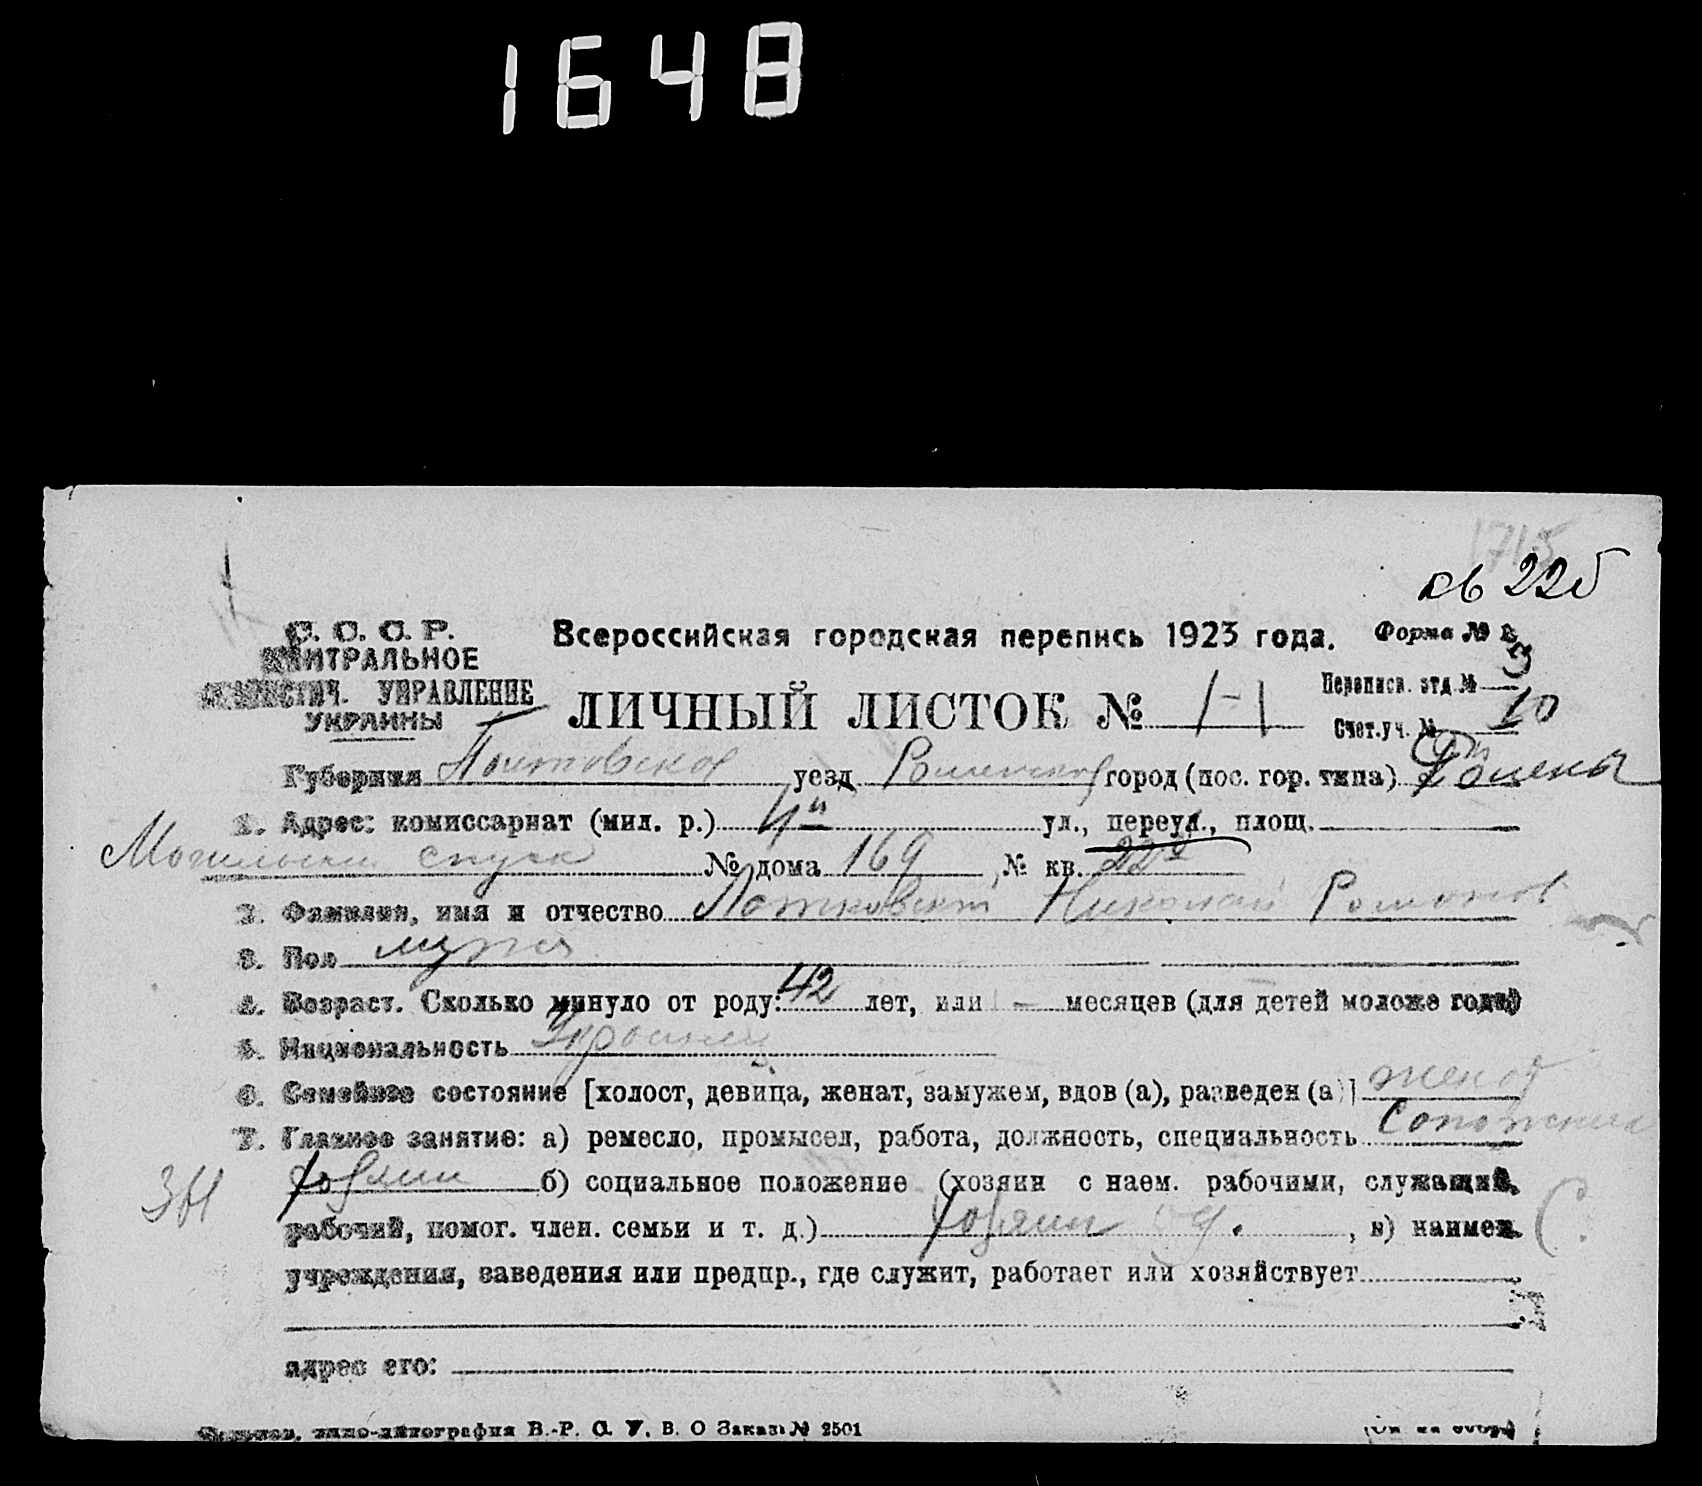 1648
1715
св 225
С. С. С. Р. Всероссийская городская перепись 1923 года. Форма №
ЦЕНТРАЛЬНОЕ 3
СТАТИСТИЧ. УПРАВЛЕНИЕ ЛИЧНЫЙ ЛИСТОК № 1-1 Перепися. отд. №
УКРАИНЫ Счет. уч. № 10
Губерния Полтавская уезд Роменский город (пос. гор. типа) Ромены
1. Адрес: комиссариат (мил. р.) ул., переул., площ.
спуск № дома 169, № кв.
2. Фамилия, имя и отчество Николай Романов
3. Пол мужск
4. Возраст. Сколько минуло от роду: 42 лет, или — месяцев (для детей моложе года)
5. Национальность Украинец
6. Семейное состояние [холост, девица, женат, замужем, вдов (а), разведен (а)] женат
7. Главное занятие: а) ремесло, промысел, работа, должность, специальность Сапожник
хозяин б) социальное положение (хозяин с наем. рабочими, служащий,
рабочий, помог. член. семьи и т. д.) хозяин од., в) наимен.
учреждения, заведения или предпр., где служит, работает или хозяйствует
адрес его:
типо-литография В.-Р. С. У. В. О Заказ № 2501